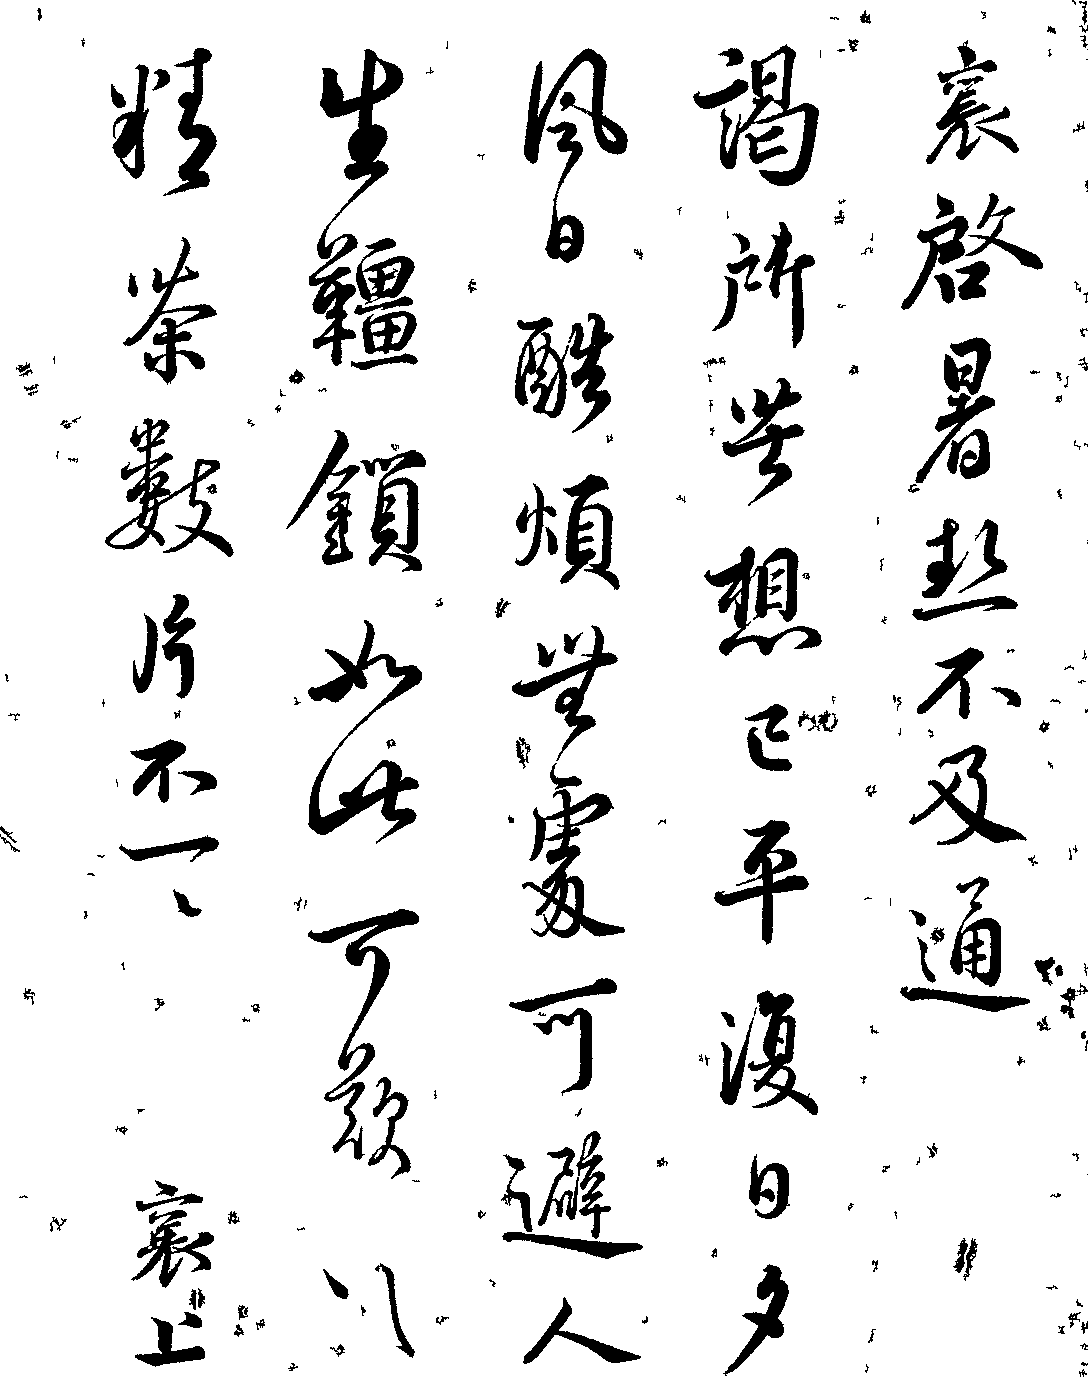 襄啓暑熱不及通
謁所苦想已平復日夕
風日酷煩無處可避人
生韁鎖如此可歎〻
精茶數片不一〻
襄上